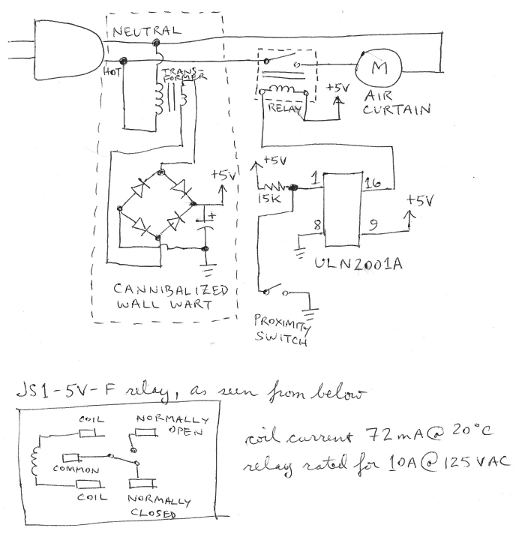 NEUTRAL
HOT
TRANS-
FORMER
RELAY
+5V
M
AIR
CURTAIN
+5V
+5V
15K
1
16
8
9
+5V
ULN2001A
+
CANNIBALIZED
WALL WART
PROXIMITY
SWITCH
JS1-5V-F relay, as seen from below
COIL
NORMALLY
OPEN
COMMON
COIL
NORMALLY
CLOSED
coil current 72mA@20°C
relay rated for 10A@125VAC